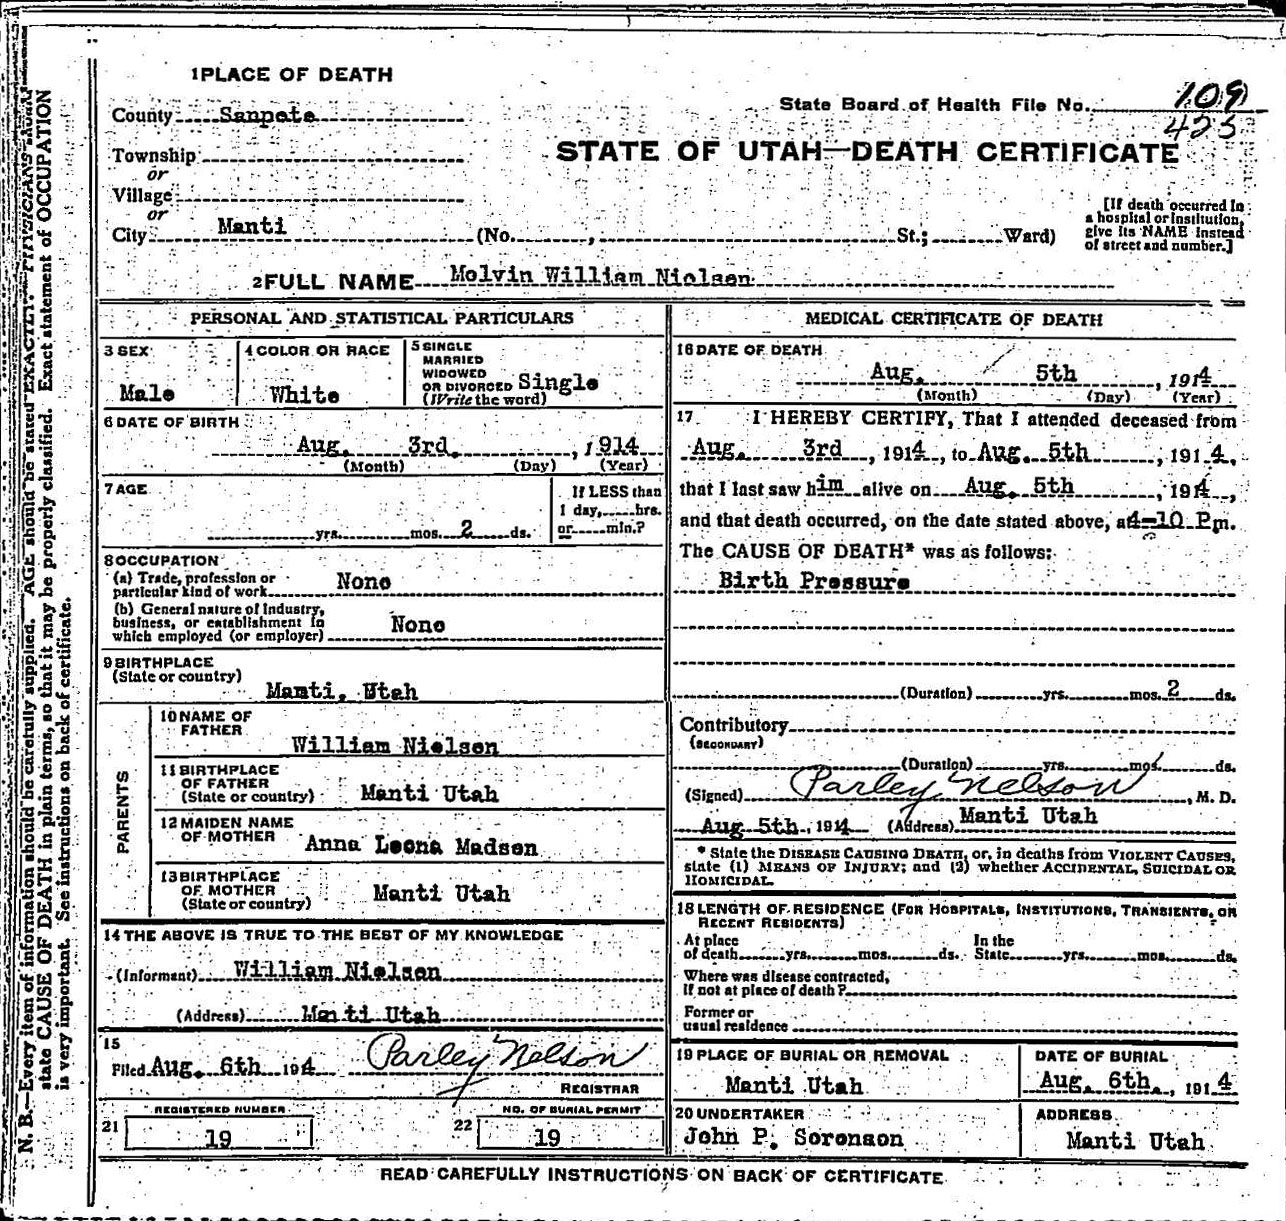 1 PLACE OF DEATH
County Sanpete
State Board of Health File No. 109
425
Township
or
Village
or
City Manti (No. , St.; Ward)
STATE OF UTAH—DEATH CERTIFICATE
[If death occurred in
a hospital or institution,
give its NAME instead
of street and number.]
2 FULL NAME Melvin William Nielsen
PERSONAL AND STATISTICAL PARTICULARS
3 SEX
Male
4 COLOR OR RACE
White
5 SINGLE
MARRIED
WIDOWED
OR DIVORCED Single
(Write the word)
6 DATE OF BIRTH
Aug. 3rd. , 1914
(Month) (Day) (Year)
7 AGE
yrs. mos. 2 ds.
If LESS than
1 day, hrs.
or min.?
8 OCCUPATION
(a) Trade, profession or
particular kind of work None
(b) General nature of Industry,
business, or establishment in
which employed (or employer) None
9 BIRTHPLACE
(State or country)
Manti, Utah
PARENTS
10 NAME OF
FATHER
William Nielsen
11 BIRTHPLACE
OF FATHER
(State or country) Manti Utah
12 MAIDEN NAME
OF MOTHER Anna Leona Madsen
13 BIRTHPLACE
OF MOTHER
(State or country) Manti Utah
14 THE ABOVE IS TRUE TO THE BEST OF MY KNOWLEDGE
(Informant) William Nielsen
(Address) Manti Utah
15
Filed Aug. 6th 1914 Parley Nelson
REGISTRAR
REGISTERED NUMBER
21 19
NO. OF BURIAL PERMIT
22 19
MEDICAL CERTIFICATE OF DEATH
16 DATE OF DEATH
Aug. 5th , 1914
(Month) (Day) (Year)
17 I HEREBY CERTIFY, That I attended deceased from
Aug. 3rd , 1914, to Aug. 5th , 1914,
that I last saw him alive on Aug. 5th , 1914,
and that death occurred, on the date stated above, at 4-10 P m.
The CAUSE OF DEATH* was as follows:
Birth Pressure
(Duration) yrs. mos. 2 ds.
Contributory
(SECONDARY)
(Duration) yrs. mos. ds.
(Signed) Parley Nelson , M. D.
Aug 5th , 1914 (Address) Manti Utah
* State the DISEASE CAUSING DEATH, or, in deaths from VIOLENT CAUSES,
state (1) MEANS OF INJURY; and (2) whether ACCIDENTAL, SUICIDAL OR
HOMICIDAL.
18 LENGTH OF RESIDENCE (FOR HOSPITALS, INSTITUTIONS, TRANSIENTS, OR
RECENT RESIDENTS)
At place
of death yrs. mos. ds.
In the
State yrs. mos. ds.
Where was disease contracted,
If not at place of death?
Former or
usual residence
19 PLACE OF BURIAL OR REMOVAL
Manti Utah
DATE OF BURIAL
Aug. 6th. , 1914
20 UNDERTAKER
John P. Sorenson
ADDRESS
Manti Utah
READ CAREFULLY INSTRUCTIONS ON BACK OF CERTIFICATE
N. B.—Every item of information should be carefully supplied. AGE should be stated EXACTLY. PHYSICIANS should
state CAUSE OF DEATH in plain terms, so that it may be properly classified. Exact statement of OCCUPATION
is very important. See instructions on back of certificate.